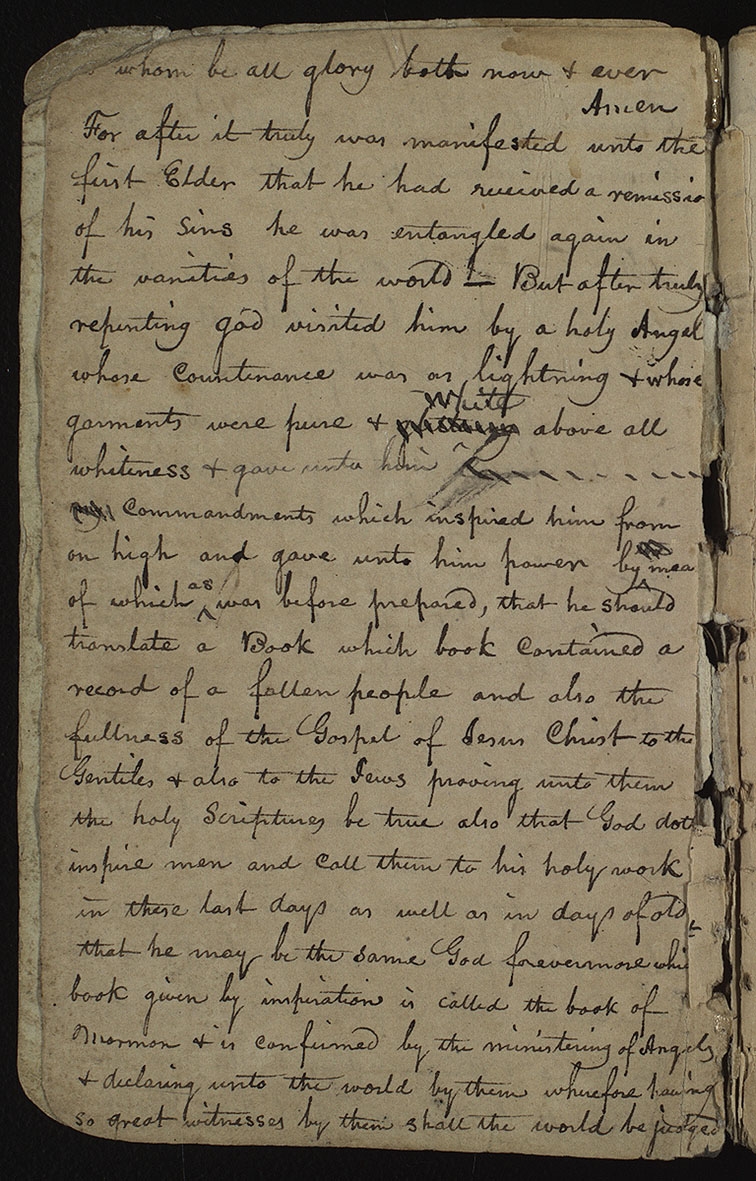 whom be all glory both now & ever
Amen
For after it truly was manifested unto the
first Elder that he had received a remissio
of his Sins he was entangled again in
the vanities of the world — But after truly
repenting god visited him by a holy Angel
whose Countinance was as lightning & whose
garments were pure & White above all
whiteness & gave unto him
Commandments which inspired him from
on high and gave unto him power by mea
of which as was before prepared, that he should
translate a Book which book contained a
record of a fallen people and also the
fullness of the Gospel of Jesus Christ to the
Gentiles & also to the Jews proving unto them
the holy Scriptures be true also that God doth
inspire men and call them to his holy work
in these last days as well as in days of old
that he may be the same God forevermore whi
book given by inspiration is called the book of
Mormon & is confirmed by the ministering of Angels
& declaring unto the world by them wherefore having
so great witnesses by them shall the world be judged